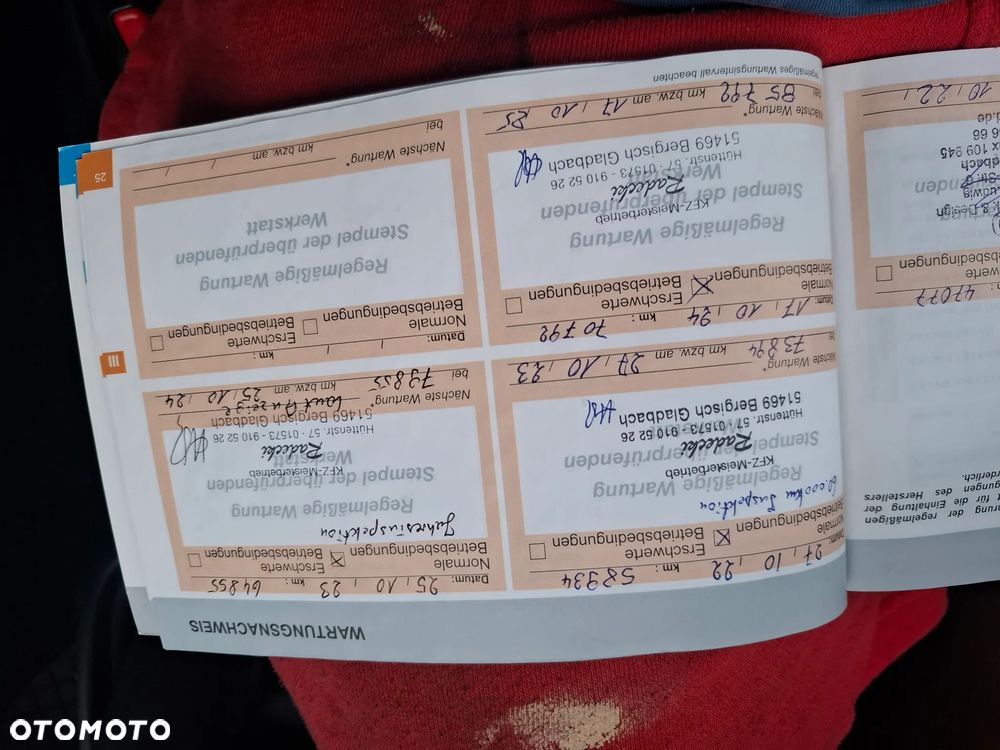 WARTUNGSNACHWEIS
Datum: 27 / 10 / 22 km: 58934
Normale Betriebsbedingungen
Erschwerte Betriebsbedingungen
60.000km Inspektion
Regelmäßige Wartung
Stempel der überprüfenden
KFZ-Meisterbetrieb
Radecki
Hüttenstr. 57 · 01573 - 910 52 26
51469 Bergisch Gladbach
Nächste Wartung*
bei 73894 km bzw. am 27 / 10 / 23
Datum: 17 / 10 / 24 km: 70792
Normale Betriebsbedingungen
Erschwerte Betriebsbedingungen
Regelmäßige Wartung
Stempel der überprüfenden
Werkstatt
KFZ-Meisterbetrieb
Radecki
Hüttenstr. 57 · 01573 - 910 52 26
51469 Bergisch Gladbach
Nächste Wartung*
bei 85792 km bzw. am 17 / 10 / 25
regelmäßiges Wartungsintervall beachten
Datum: 25 / 10 / 23 km: 64855
Normale Betriebsbedingungen
Erschwerte Betriebsbedingungen
Jahresinspektion
Regelmäßige Wartung
Stempel der überprüfenden
Werkstatt
KFZ-Meisterbetrieb
Radecki
Hüttenstr. 57 · 01573 - 910 52 26
51469 Bergisch Gladbach
laut Anzeige
Nächste Wartung*
bei 79855 km bzw. am 25 / 10 / 24
Datum: / / km:
Normale Betriebsbedingungen
Erschwerte Betriebsbedingungen
Regelmäßige Wartung
Stempel der überprüfenden
Werkstatt
Nächste Wartung*
bei km bzw. am / /
III
25
rung der regelmäßigen
t für die Einhaltung der
gungen des Herstellers
rderlich.
km: 47077
Betriebsbedingungen
Wartung
& Design
Ludwig
Str. 6
dbach
x 109 945
6 66
d.de
10 / 22 /
OTOMOTO